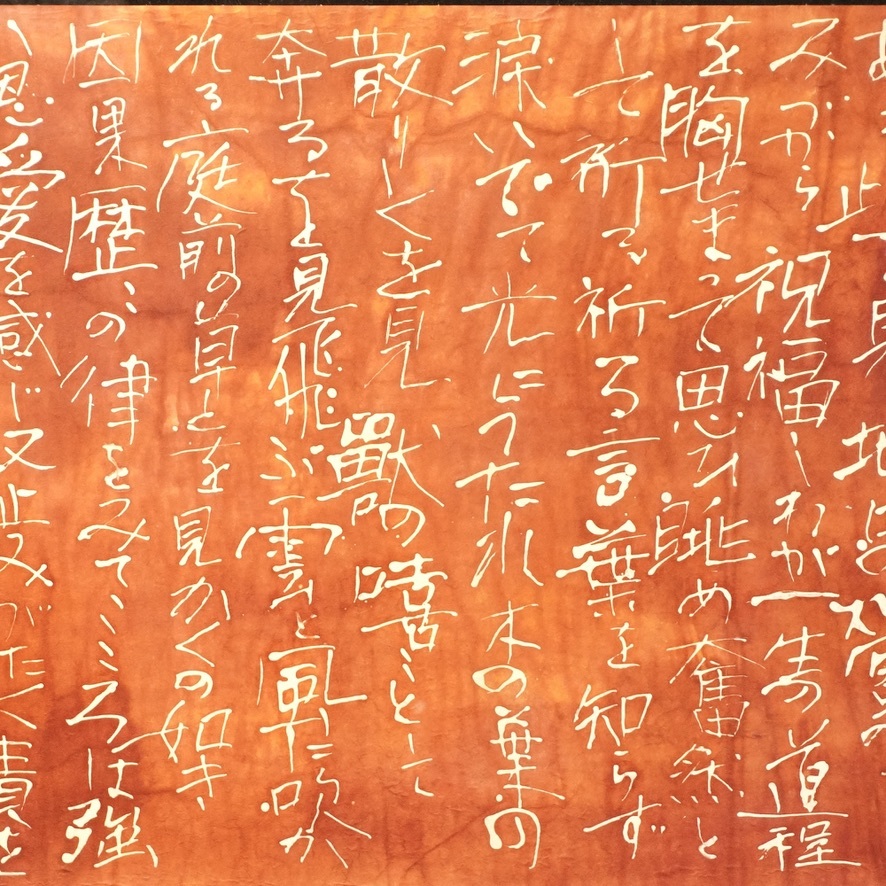 みながら祝福しわが一生の道程
を胸せまって思ひ眺め奮然と
して祈る祈る言葉を知らず
涙いでて光にうたれ木の葉の
散りしくを見獸の嘻々として
奔るを見飛ぶ雲と風に吹か
れる庭前の草とを見かくの如き
因果歴々の律をみてこころは強
恩愛を感じ又止みがたい責を